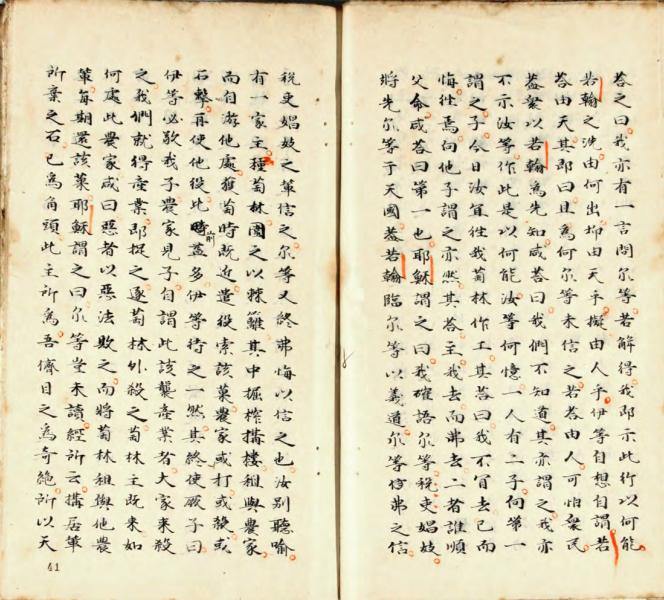 答之曰我亦有一言問尔等若解得我即示此行以何能
若翰之洗由何出抑由天乎擬由人乎伊等自想自謂若
答由天其即曰且為何尔等未信之若答由人可怕衆民
蓋衆以若翰為先知咸答曰我們不知道其亦謂之我亦
不示汝等作此是以何能汝等何憶一人有二子向第一
謂之子今日汝冝徃我萄林作工其答曰我不肯去已而
悔徃焉向他子謂之亦然其答主我去而弗去二者誰順
父命咸答曰第一也耶穌謂之曰我確語尔等稅吏娼妓
將先尔等于天國蓋若翰臨尔等以義道尔等仿弗之信
稅吏娼妓之軰信之尔等又終弗悔以信之也汝别聽喻
有一家主種萄林園之以棘籬其中掘榨搆楼租與農家
而自游他處穫萄時既近遣役索該菓農家或打或殺或
石擊再使他役比前時葢多伊等待之一然其終使厥子曰
伊等必敬我子農家見子自謂此該襲產業者大家来殺
之我們就得產業即捉之逐萄林外殺之萄林主既来如
何處此農家咸曰惡者以惡法敗之而將萄林租與他農
軰每期還該菓耶穌謂之曰尔等豈未讀經所云搆居軰
所棄之石已為角頭此主所為吾儕目之為奇絶所以天
41